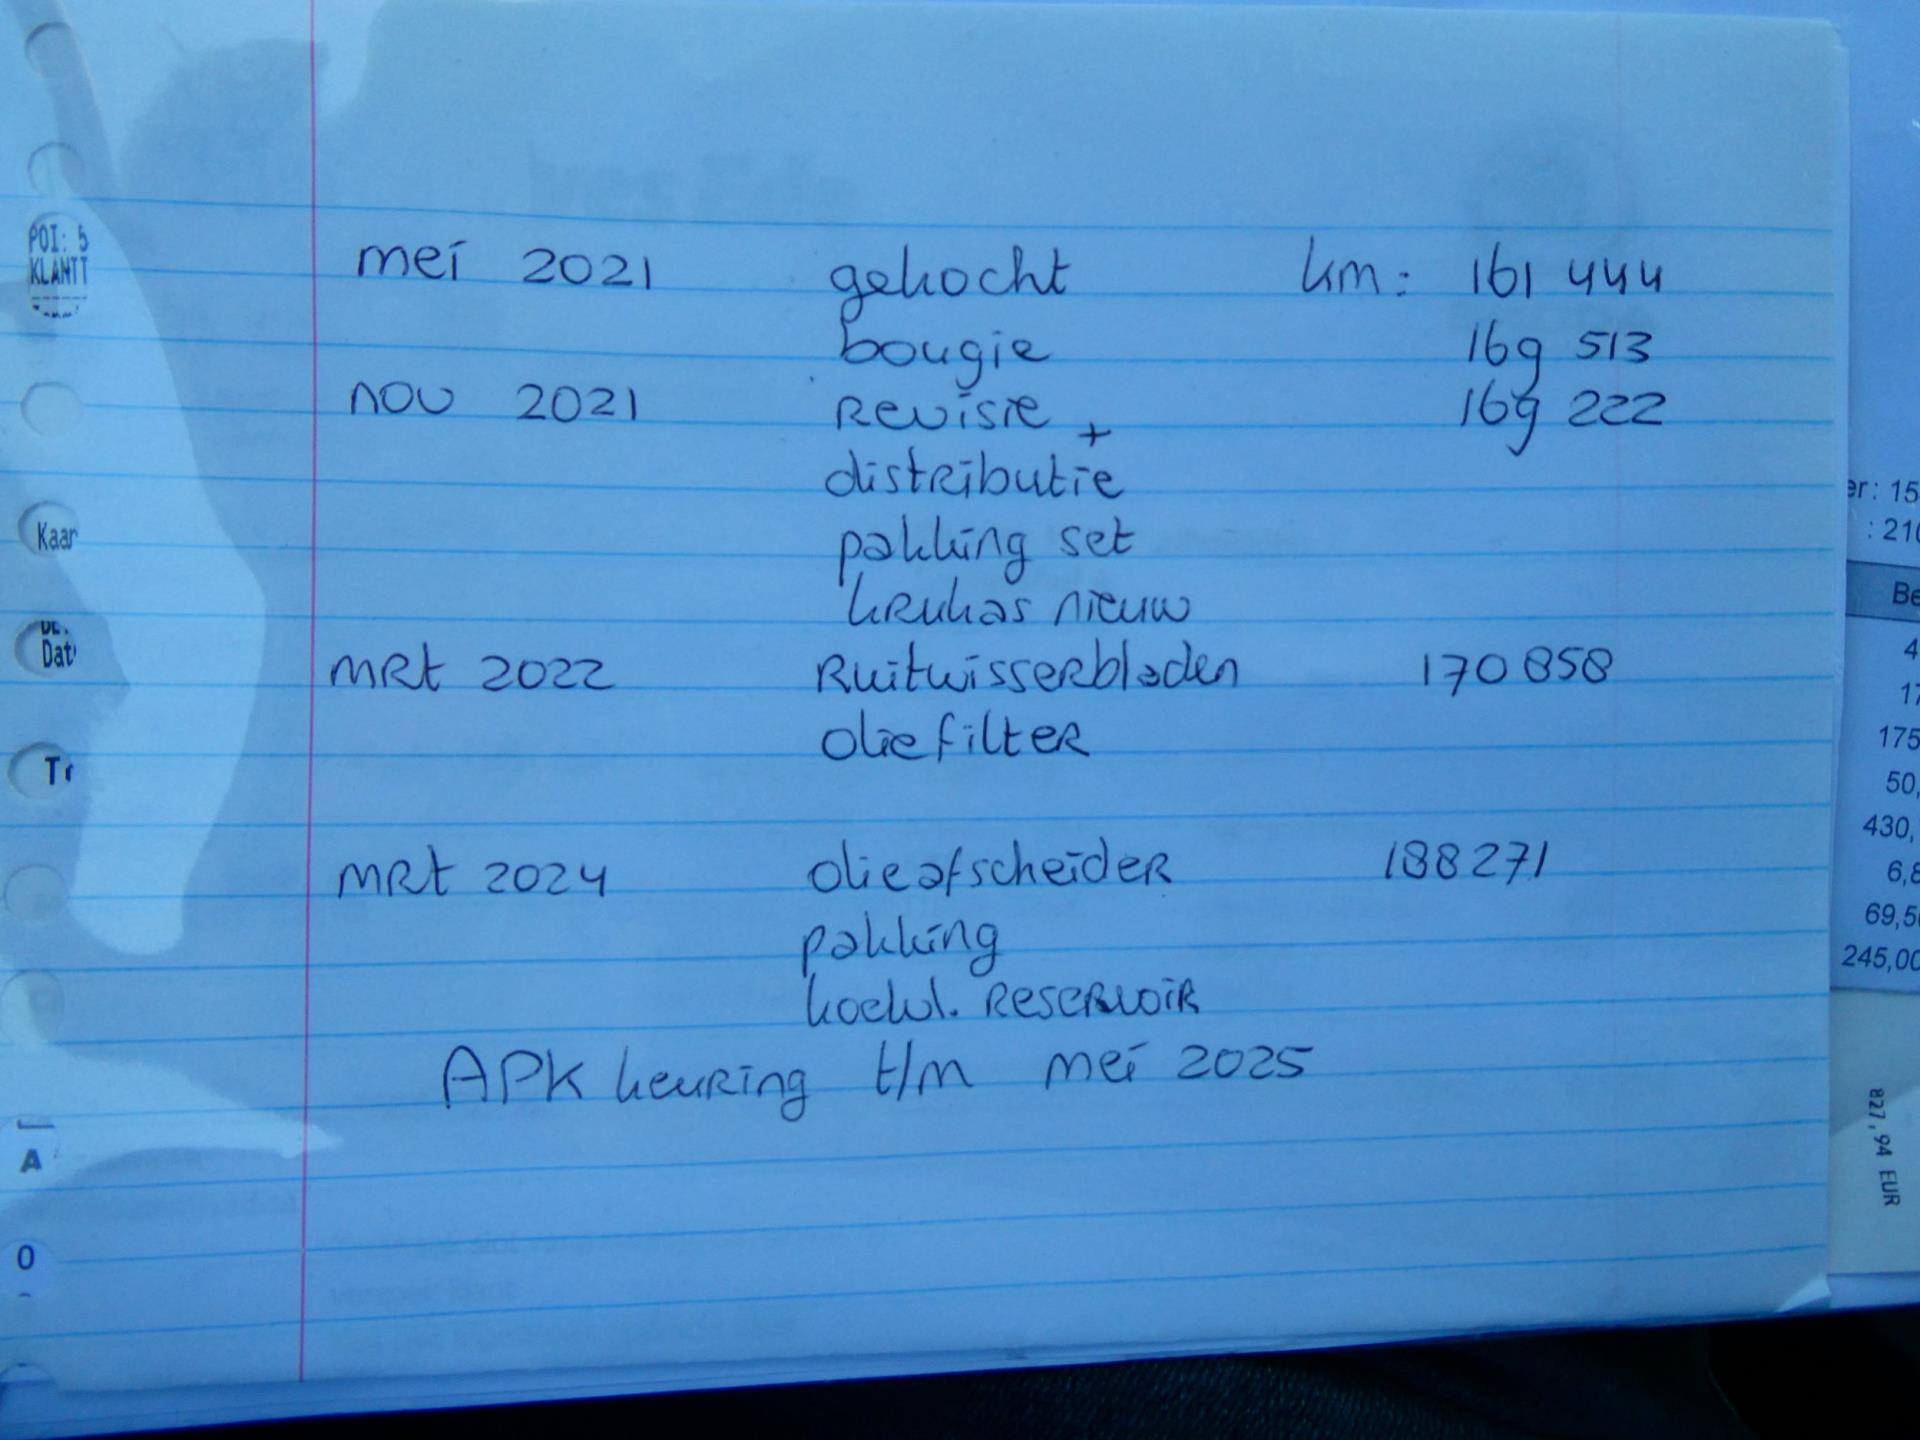 mei 2021 gekocht km: 161 444
bougie 169 513
nov 2021 Revisie + 169 222
distributie
pakking set
krukas nieuw
mrt 2022 Ruitwisserbladen 170 858
oliefilter
mrt 2024 olieafscheider 188271
pakking
koelvl. reservoir
APK keuring t/m mei 2025
POI: 5
KLANTT
Kaar
Dat
Tr
A
0
er: 15
: 210
Be
4
17
175
50,
430,
6,8
69,5
245,00
827,94 EUR